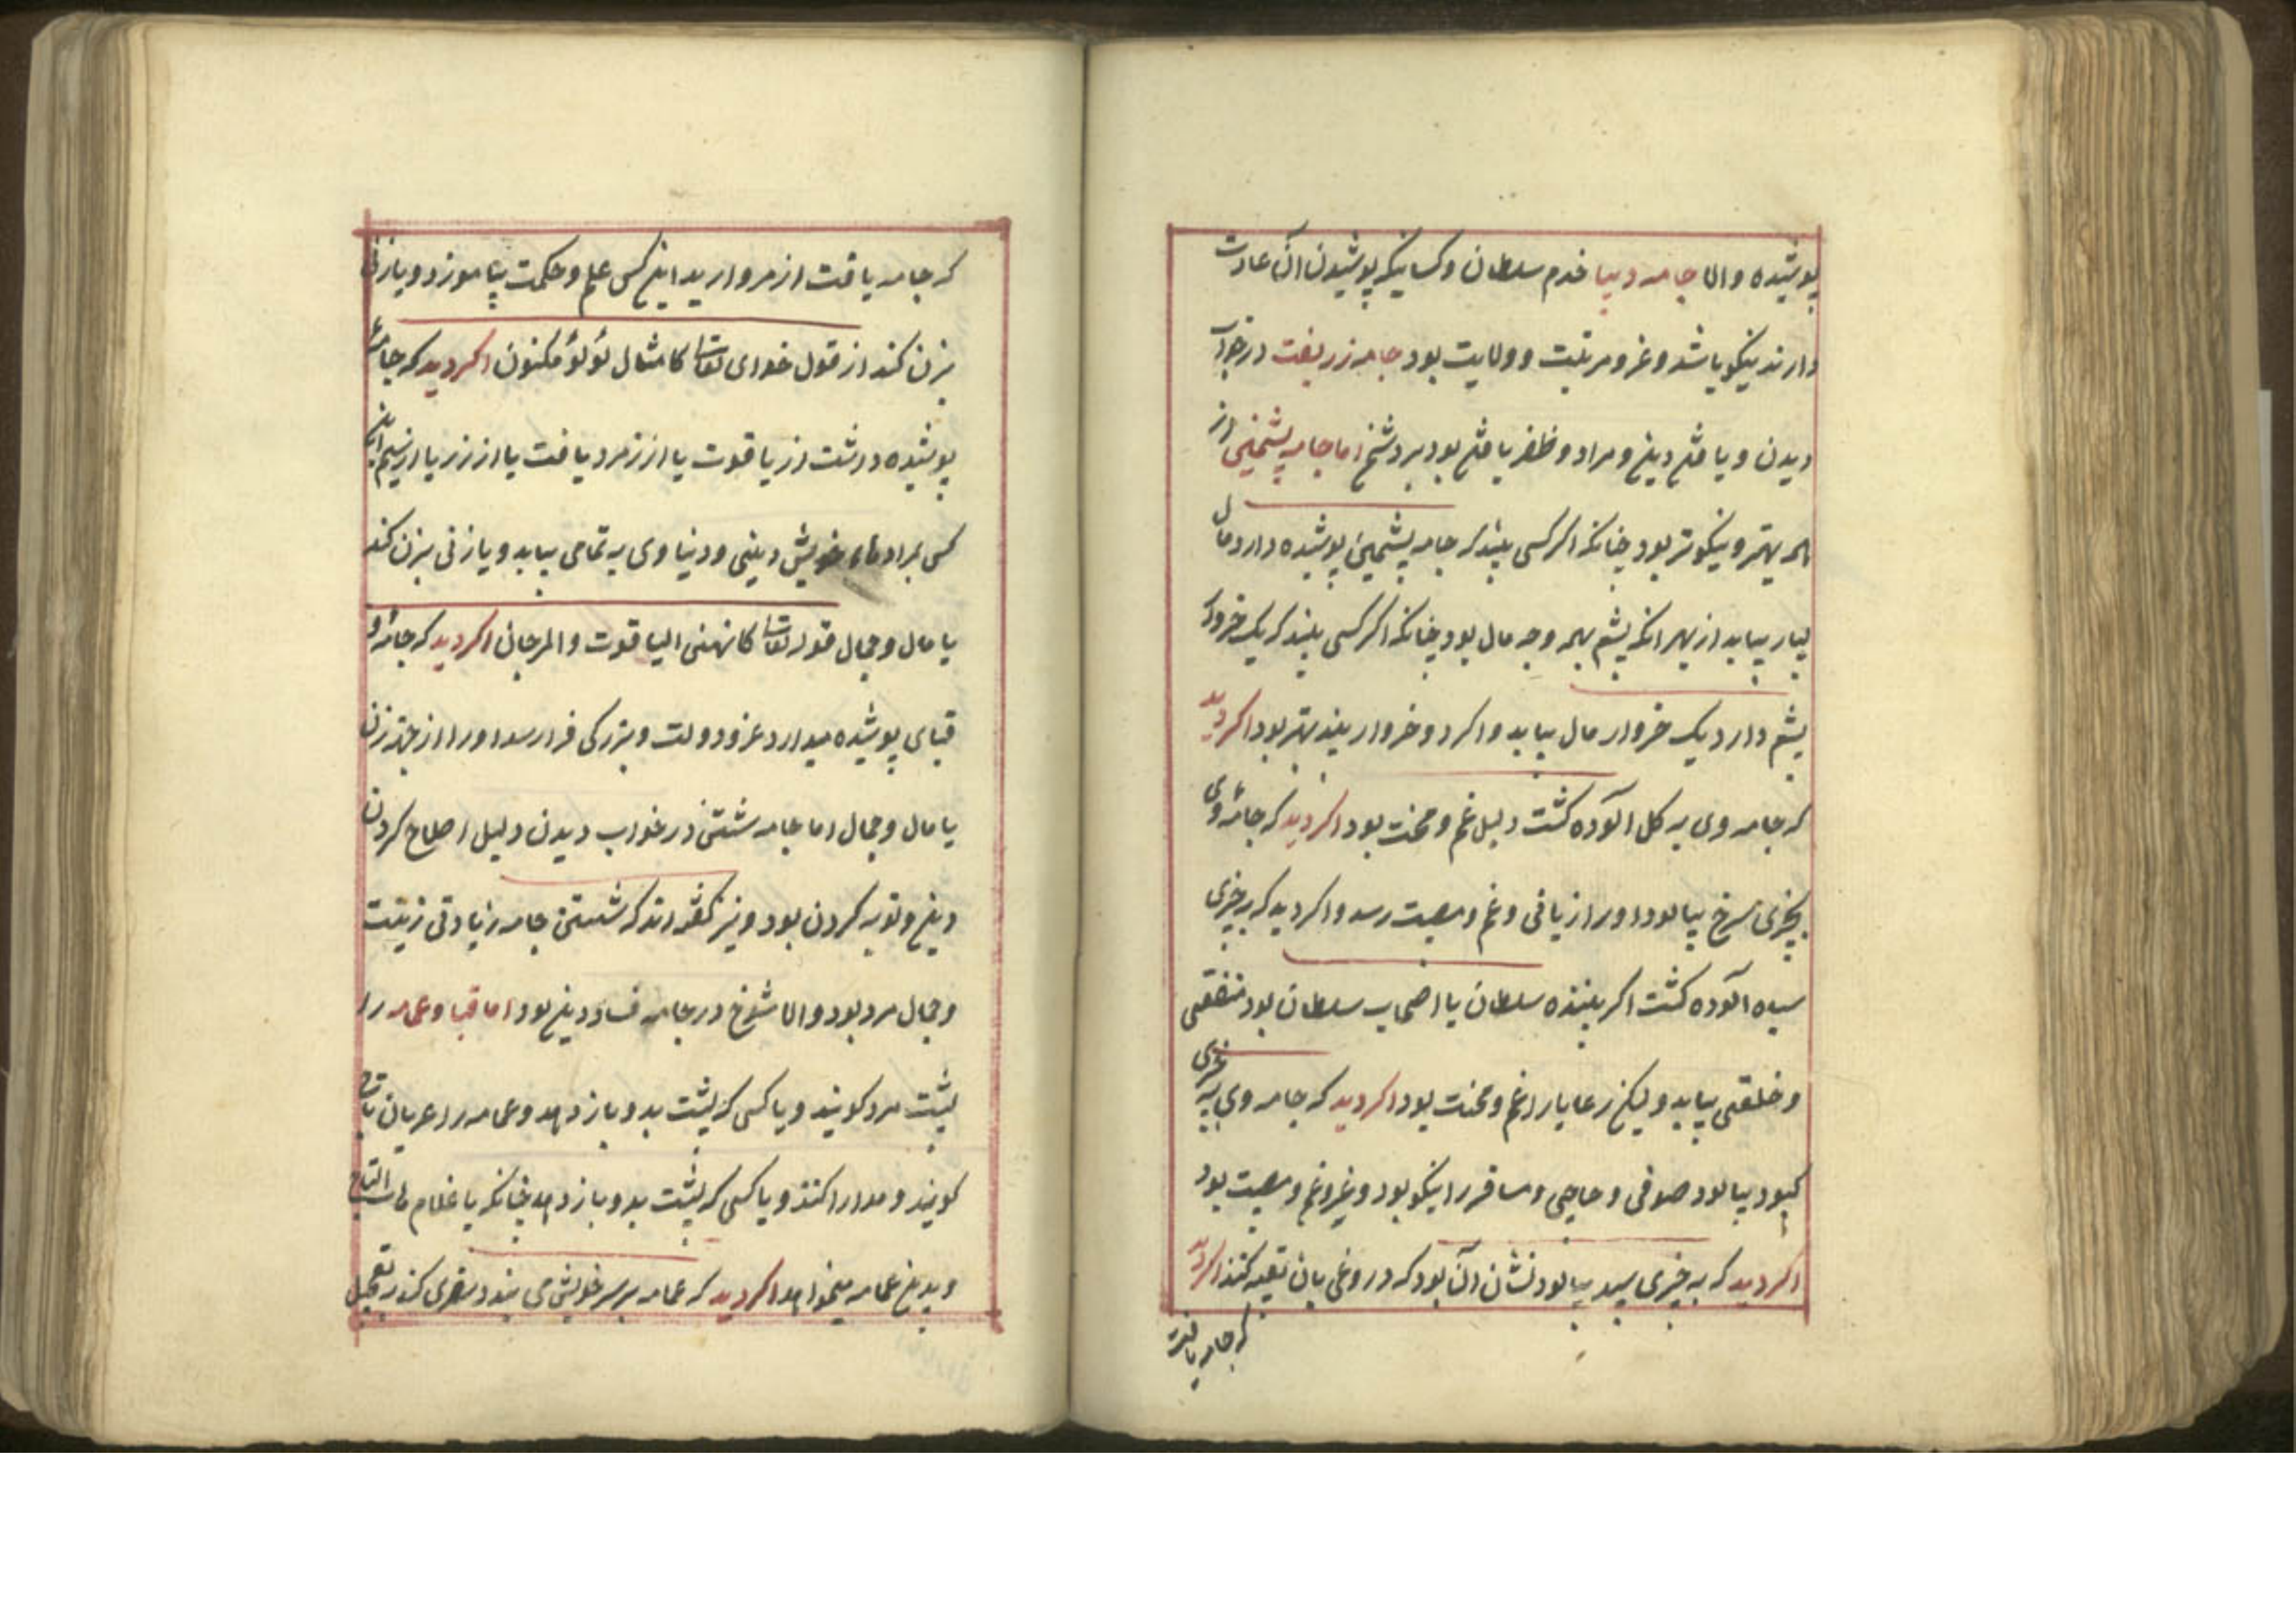 پوشیده والا جامه دیبا خدم سلطان و کسانیکه پوشیدن آن عادت
دارند نیکو باشد و عز و مرتبت و ولایت بود جامه زربفت در خواب
دیدن و یافتن دین و مراد و ظفر یافتن بود بر دشمن اما جامه پشمین از
همه بهتر و نیکوتر بود چنانکه اگر کسی بیند که جامه پشمین پوشیده دارد مال
بسیار بیابد از بهر انکه پشم بهمه وجه مال بود چنانکه اگر کسی بیند که یک خروار
پشم دارد یک خروار مال بیابد و اگر دو خروار بیند بهتر بود اگر دید
که جامه وی به گل آلوده گشت دلیل غم و محنت بود اگر دید که جامهٔ وی
بچیزی سرخ بیالود او را زیانی و غم و مصیبت رسد و اگر دید که بر چیزی
سیاه آلوده گشت اگر بیننده سلطان یا اصحاب سلطان بود منفعتی
و خلعتی بیابد و لیکن رعایا را غم و محنت بود اگر دید که جامه وی به چیزی
کبود بیالود صوفی و حاجی و مسافر را نیکو بود و غیر و غم و مصیبت بود
اگر دید که به چیزی سپید بیالود نشان آن بود که دروغی بان تعبیه کنند اگر دید
که جامه یافت
که جامه یافت از مروارید این کس علم و حکمت بیاموزد و یا زنی
بزن کند از قول خدای تعالی کامثال لؤلؤ مکنون اگر دید که جامهٔ
پوشیده داشت از یاقوت یا از زمرد یافت یا از زر یا از سیم این
کس بمرادهای خویش دینی و دنیاوی به تمامی بیابد و یا زنی بزن کند
با مال و جمال قوله تعالی کانهن الیاقوت والمرجان اگر دید که جامه و
قبای پوشیده میدارد عز و دولت و بزرگی فرا رسد او را از جهة زن
با مال و جمال اما جامه شستن در خواب دیدن دلیل اصلاح کردن
دین و توبه کردن بود و نیز گفته اند که شستن جامه زیادتی زینت
و جمال مرد بود والا شوخ در جامه فساد دین بود اما قبا و عمامه را
پشت مرد گویند و یا کسی که پشت بدو باز دهد و عمامه را عربان تاج
گویند و مدارا کنند و یا کسی که پشت بدو باز دهد چنانکه یا غلام التاج
و بدین عمامه میخواهد اگر دید که عمامه بر سر خویش می بندد سفری کند بتعجیل